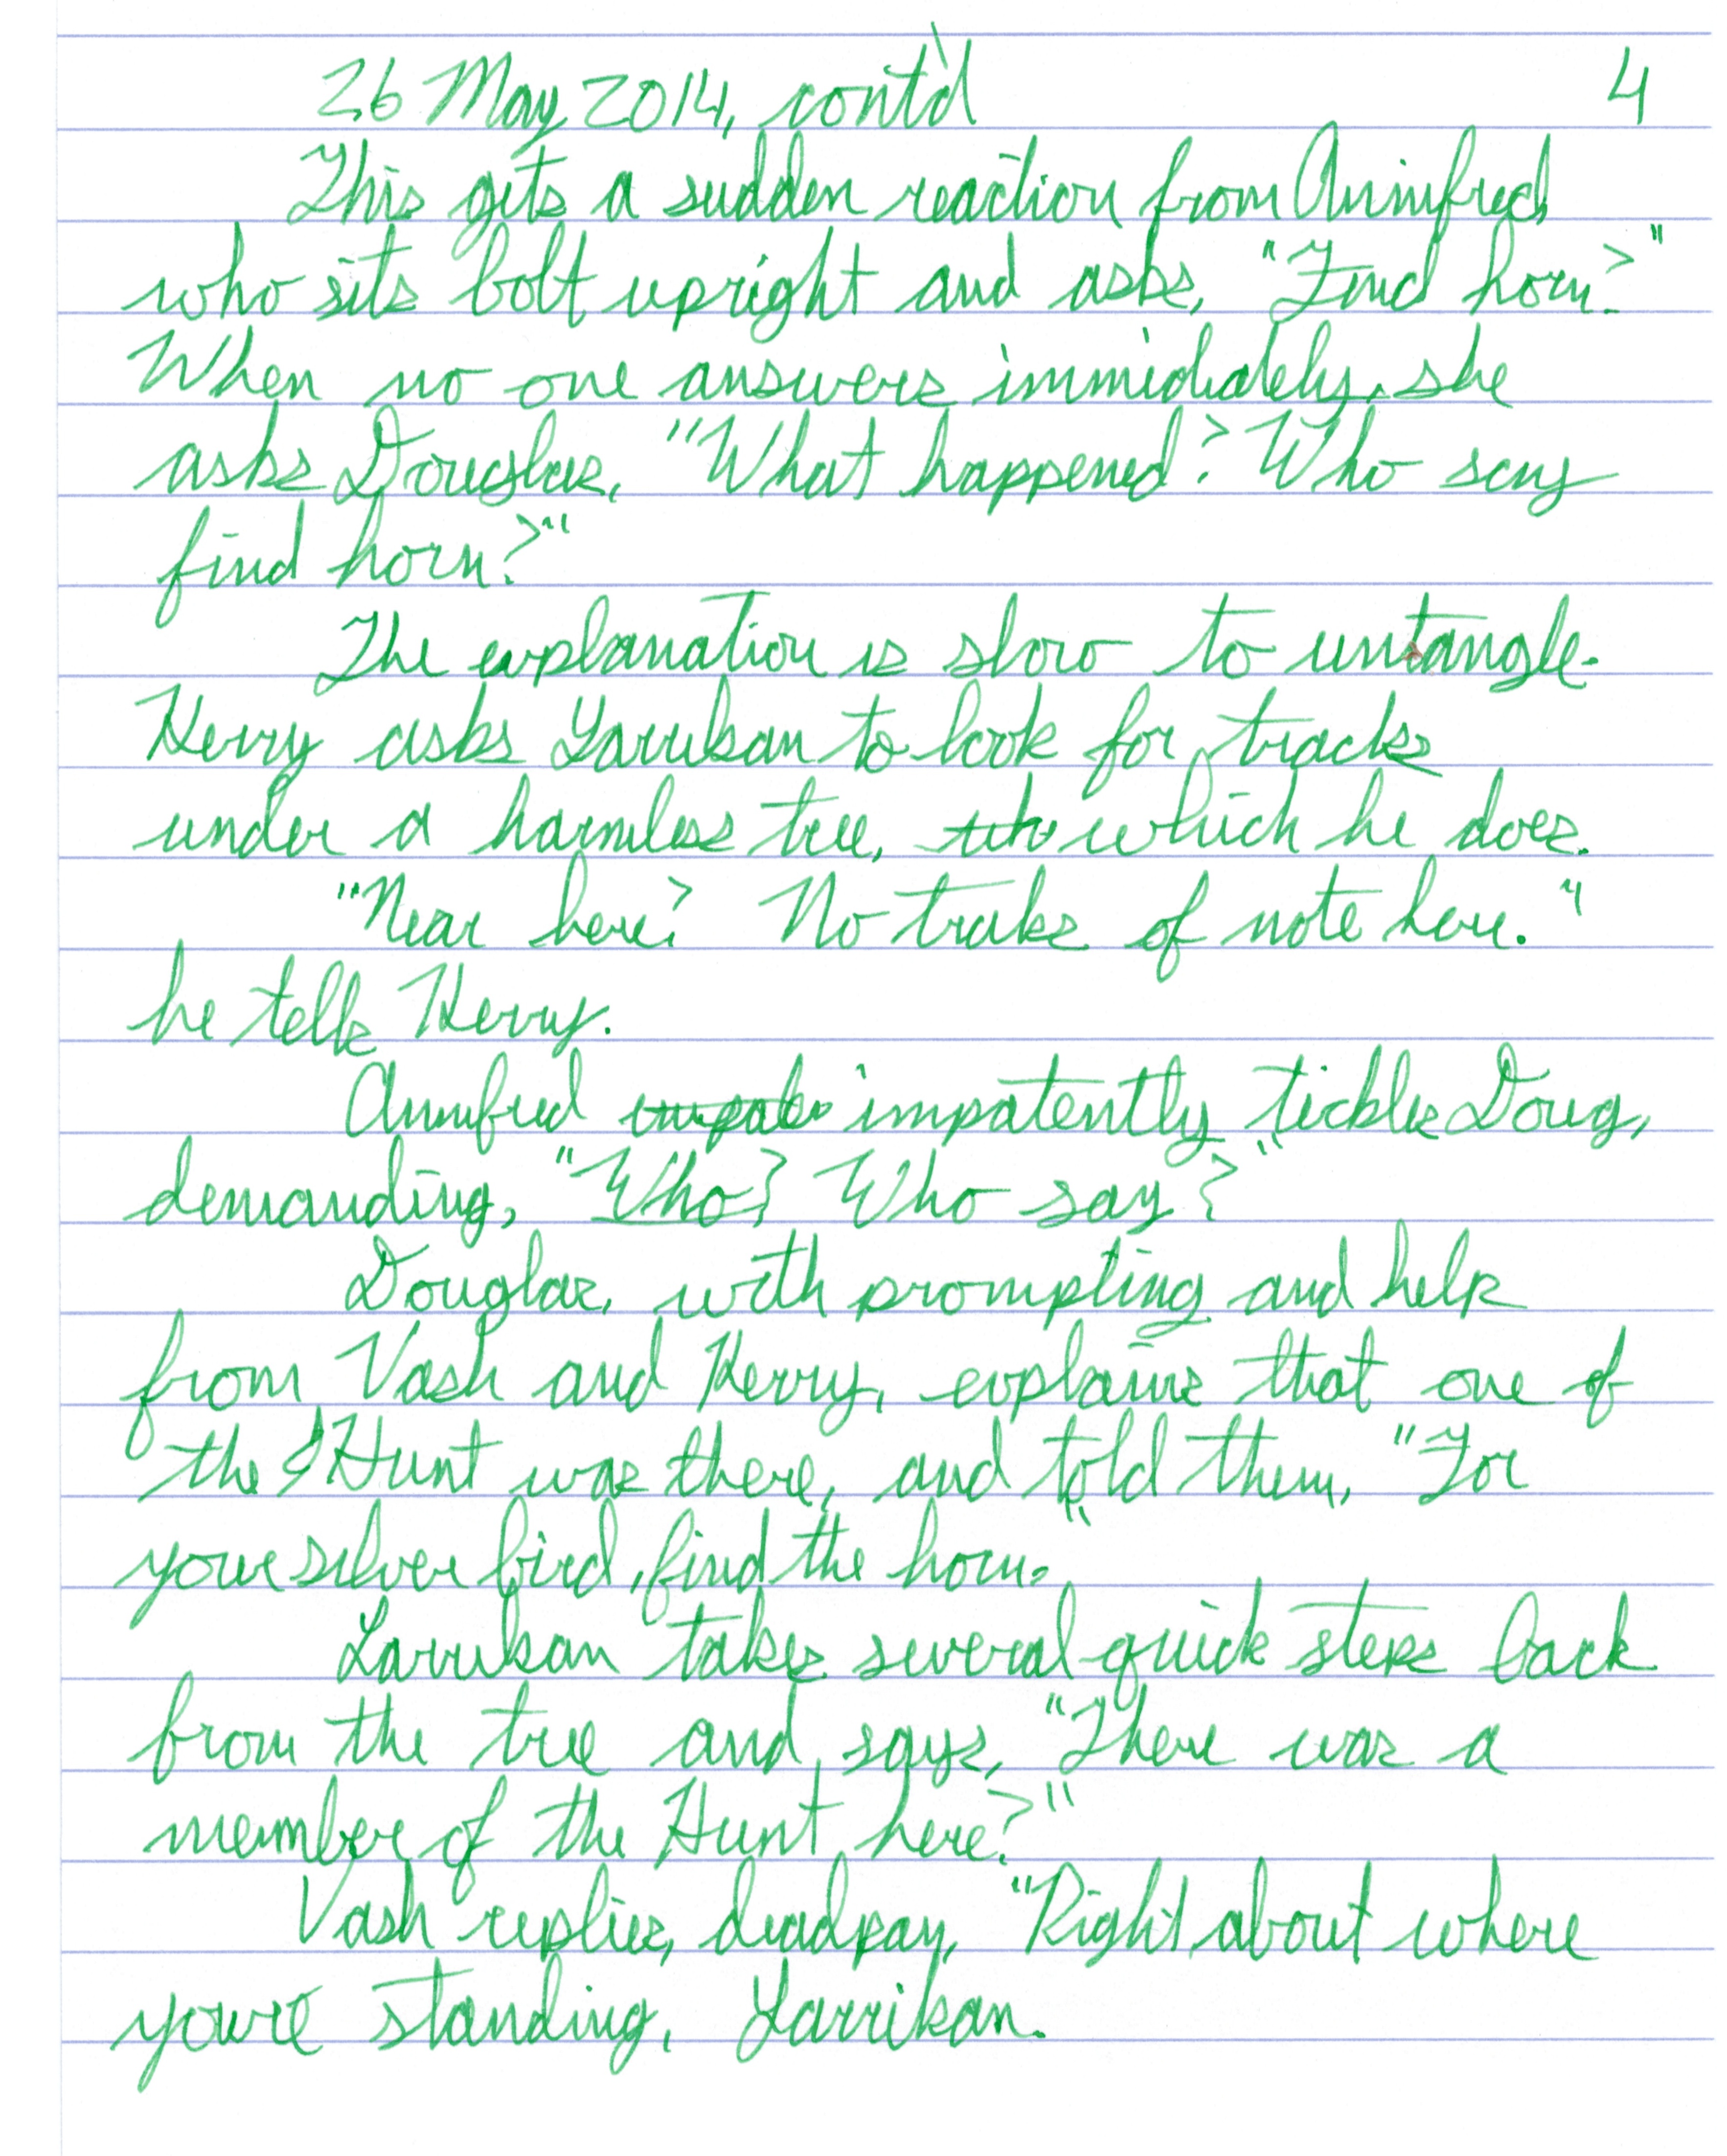 26 May 2014, cont'd 4
This gets a sudden reaction from Aninfred,
who sits bolt upright and asks, "Find horn?"
When no one answers immediately, she
asks Douglas, "What happened? Who say
find horn?"
The explanation is slow to untangle.
Kerry asks Larrikan to look for tracks
under a harmless tree, which he does.
"Near here? No traks of note here."
he tells Kerry.
Aninfred impatently tickles Doug,
demanding, "Who? Who say?"
Douglas, with prompting and help
from Vash and Kerry, explains that one of
the Hunt was there, and told them, "For
your silver bird, find the horn."
Larrikan takes several quick steps back
from the tree and says, "There was a
member of the Hunt here?"
Vash replies, deadpan, "Right about where
you're standing, Larrikan.